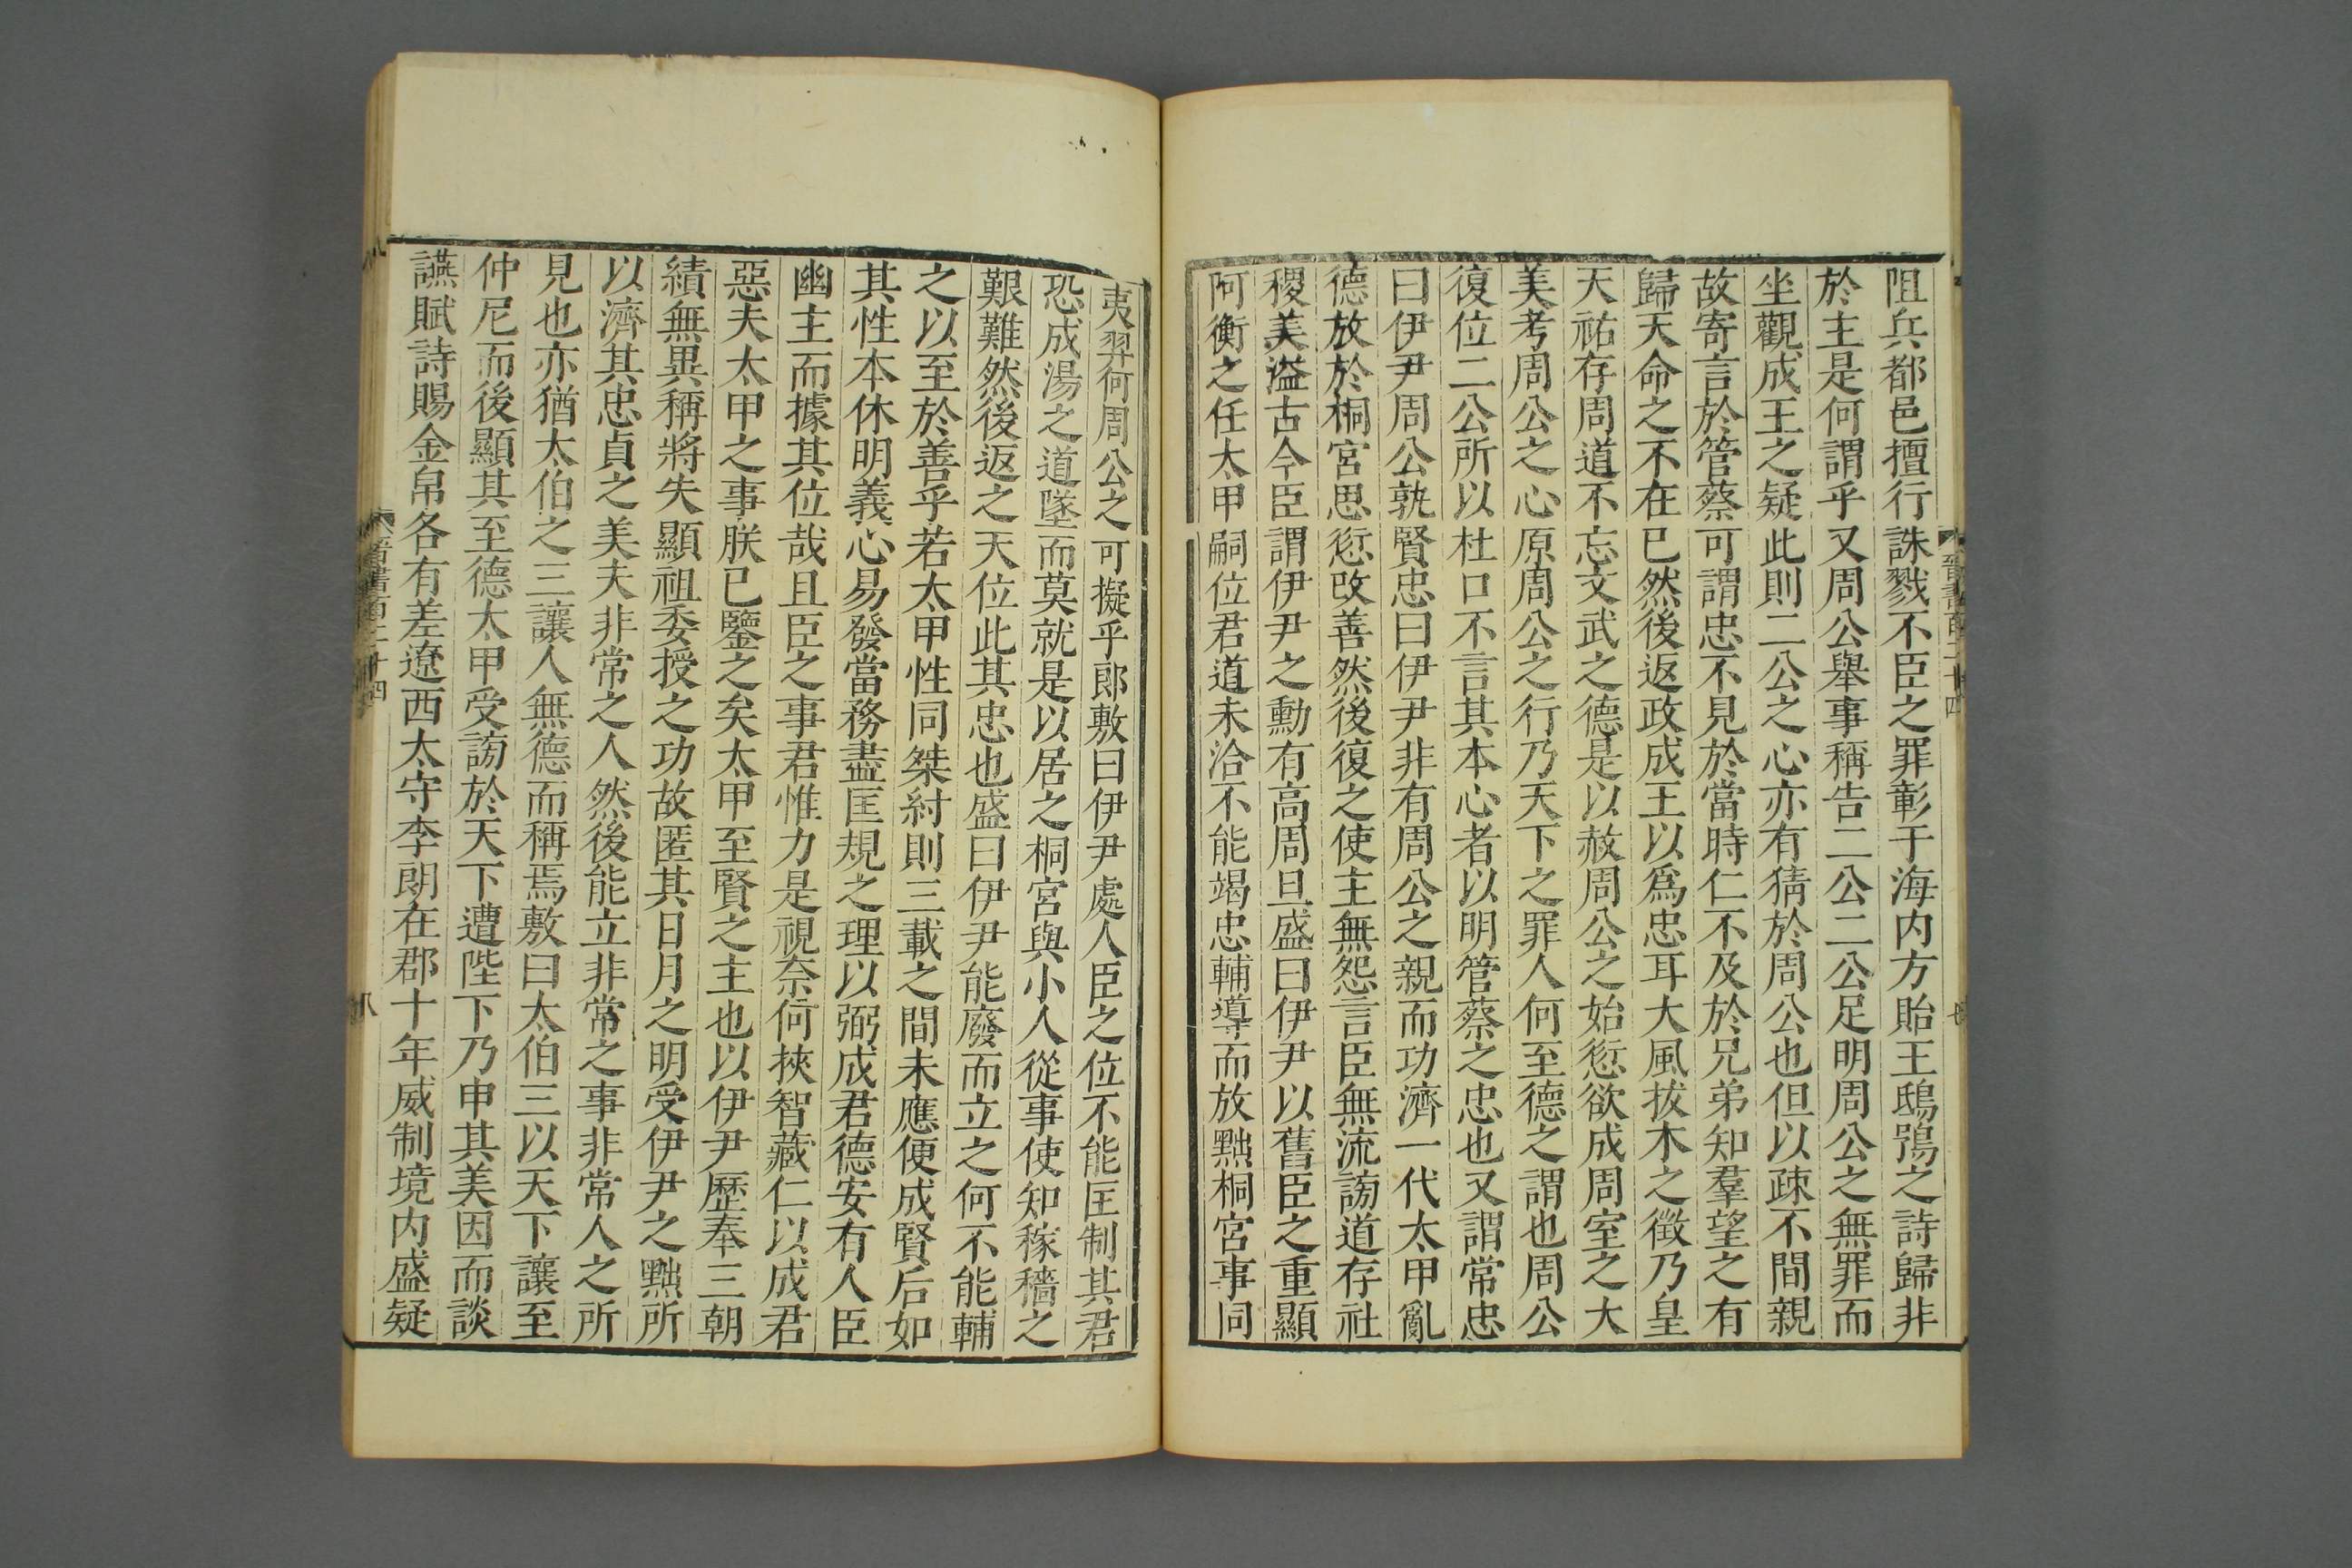 阻兵都邑擅行誅戮不臣之罪彰于海内方貽王鴟鴞之詩歸非
於主是何謂乎又周公舉事稱告二公二公足明周公之無罪而
坐觀成王之疑此則二公之心亦有猜於周公也但以疎不間親
故寄言於管蔡可謂忠不見於當時仁不及於兄弟知羣望之有
歸天命之不在已然後返政成王以爲忠耳大風拔木之徵乃皇
天祐存周道不忘文武之德是以赦周公之始愆欲成周室之大
美考周公之心原周公之行乃天下之罪人何至德之謂也周公
復位二公所以杜口不言其本心者以明管蔡之忠也又謂常忠
曰伊尹周公孰賢忠曰伊尹非有周公之親而功濟一代太甲亂
德放於桐宮思愆改善然後復之使主無怨言臣無流謗道存社
稷美溢古今臣謂伊尹之勳有高周旦盛曰伊尹以舊臣之重顯
阿衡之任太甲嗣位君道未洽不能竭忠輔導而放黜桐宮事同
夷羿何周公之可擬乎郎敷曰伊尹處人臣之位不能匡制其君
恐成湯之道墜而莫就是以居之桐宮與小人從事使知稼穡之
艱難然後返之天位此其忠也盛曰伊尹能廢而立之何不能輔
之以至於善乎若太甲性同桀紂則三載之間未應便成賢后如
其性本休明義心易發當務盡匡規之理以弼成君德安有人臣
幽主而據其位哉且臣之事君惟力是視奈何挾智藏仁以成君
惡夫太甲之事朕已鑒之矣太甲至賢之主也以伊尹歷奉三朝
績無異稱將失顯祖委授之功故匿其日月之明受伊尹之黜所
以濟其忠貞之美夫非常之人然後能立非常之事非常人之所
見也亦猶太伯之三讓人無德而稱焉敷曰太伯三以天下讓至
仲尼而後顯其至德太甲受謗於天下遭陛下乃申其美因而談
讌賦詩賜金帛各有差遼西太守李朗在郡十年威制境内盛疑
晉書百二十四
八